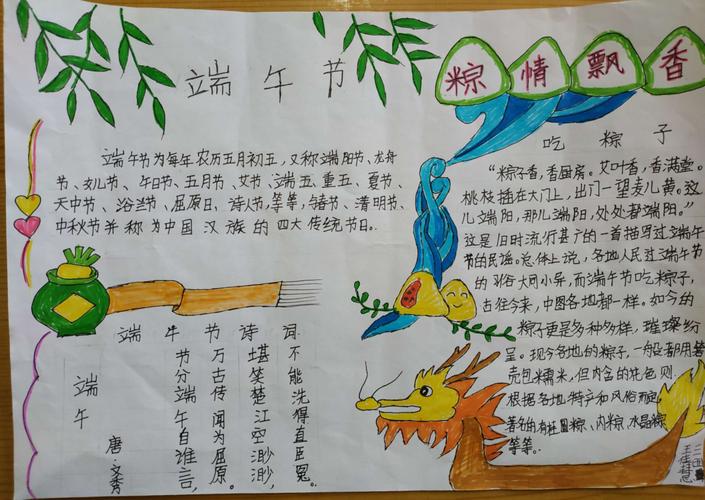 端午节
端午节为每年农历五月初五,又称端阳节、龙舟
节、女儿节、午日节、五月节、艾节、端五、重五、夏节、
天中节、浴兰节、屈原日、诗人节,等等,与春节、清明节、
中秋节并称为中国汉族的四大传统节日。
端午节诗词
端午
唐·文秀
节分端午自谁言,
万古传闻为屈原。
堪笑楚江空渺渺,
不能洗得直臣冤。
粽情飘香
吃粽子
“粽子香,香厨房。艾叶香,香满堂。
桃枝插在大门上,出门一望麦儿黄。这
儿端阳,那儿端阳,处处都端阳。”
这是旧时流行甚广的一首描写过端午
节的民谣。总体上说,各地人民过端午节
的习俗大同小异,而端午节吃粽子,
古往今来,中国各地都一样。如今的
粽子更是多种多样,璀璨纷
呈。现今各地的粽子,一般都用箬
壳包糯米,但内含的花色则
根据各地特产和风俗而定,
著名的有桂圆粽、肉粽、水晶粽
等等。